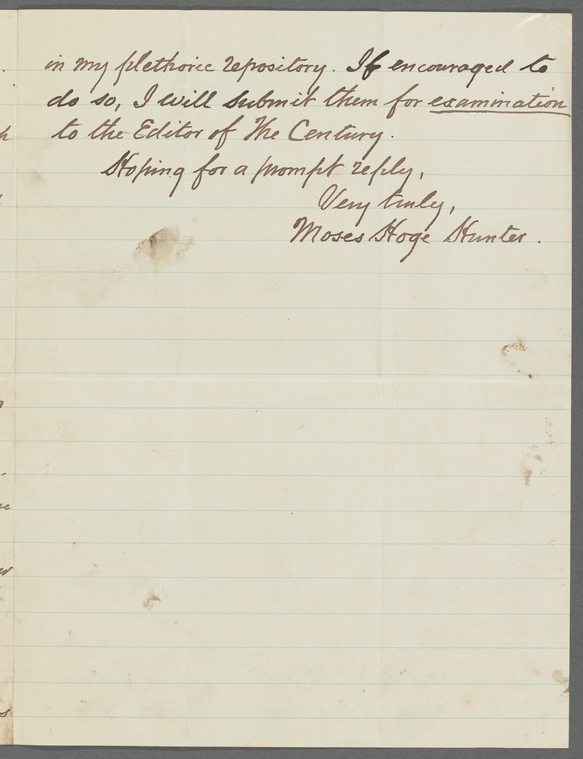 in my plethoric repository. If encouraged to
do so, I will submit them for examination
to the Editor of The Century.
Hoping for a prompt reply,
Very truly,
Moses Hoge Hunter.